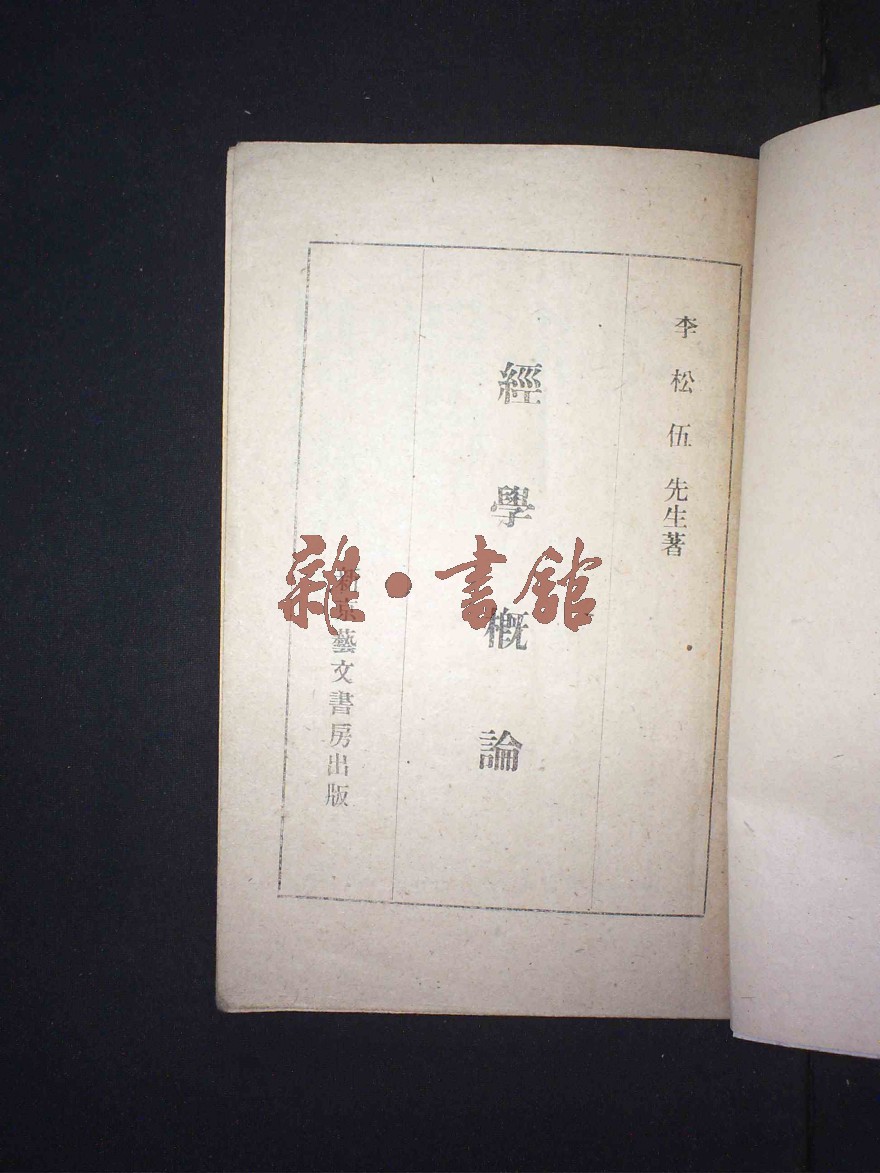 李松伍先生著
經學概論
新京藝文書房出版
雜·書舘